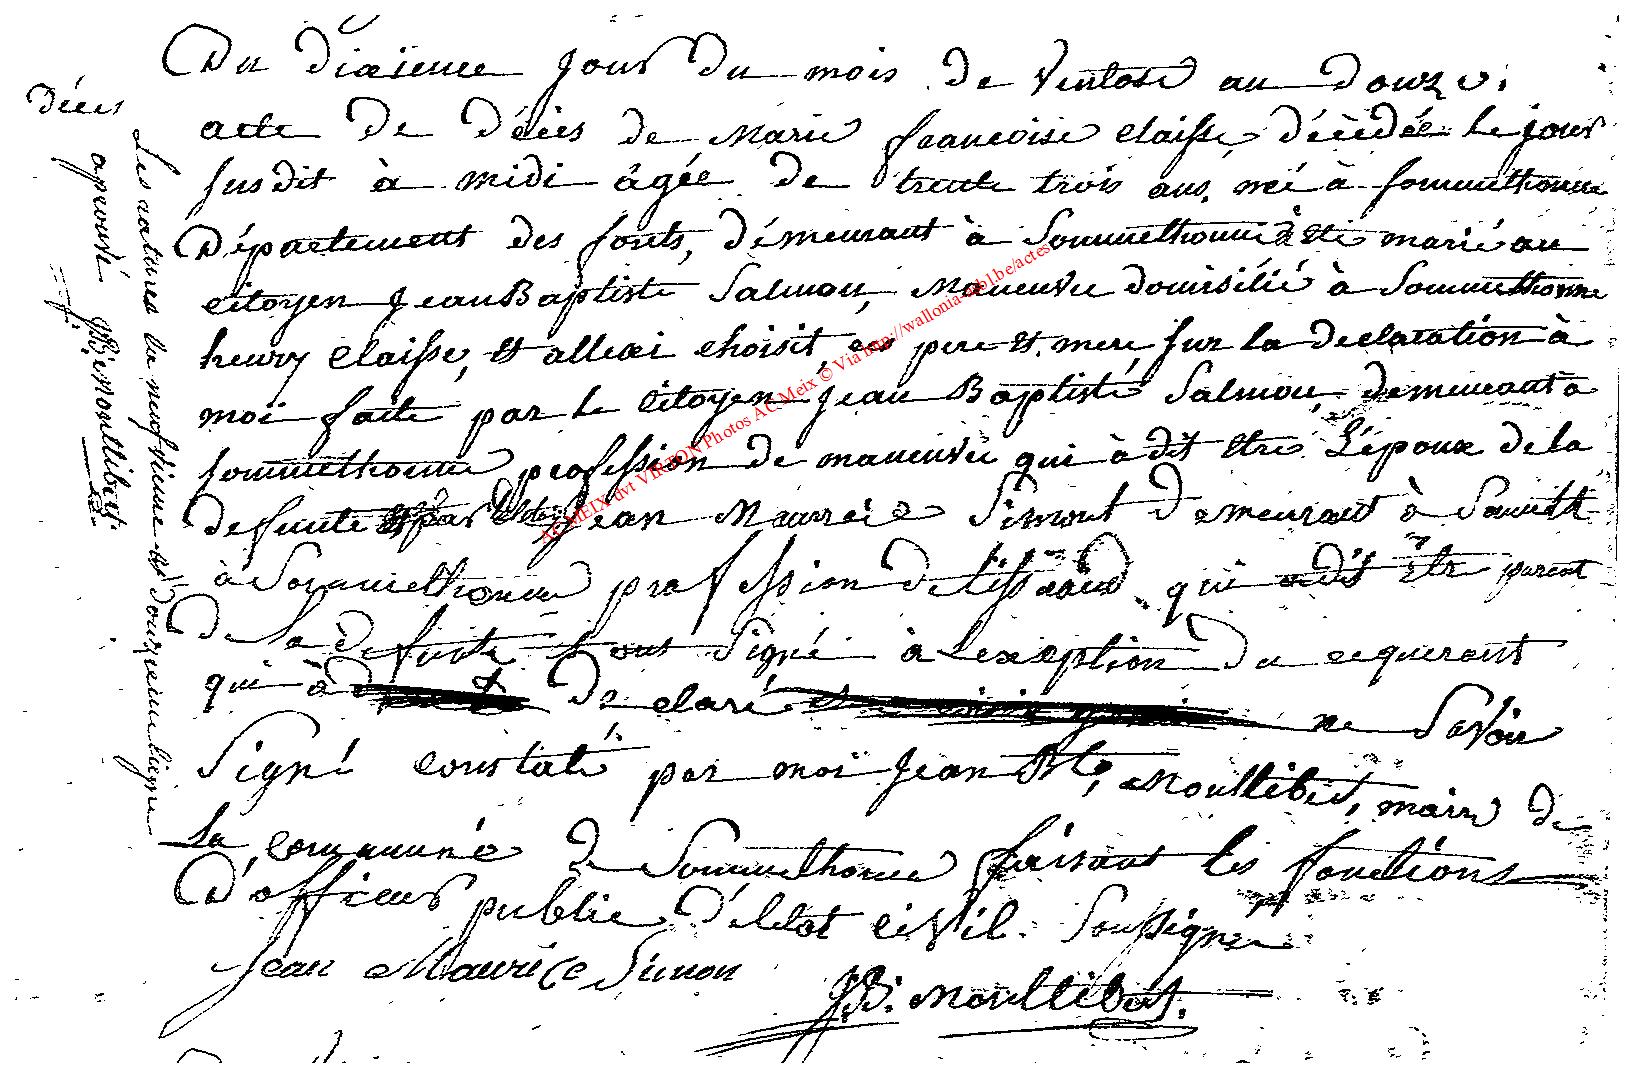 Décés
Les ratures la neufvieme et douzieme ligne
aprouvé JBte Moultibert
Du dixieme jour du mois de Ventose an douze.
acte de décès de Marie francoise Claisse, décédée le jour
susdit à midi âgée de trente trois ans. née à Sommethonne
Département des forets, démeurant à Sommethonne à Eté marié au
citoyen Jean Baptiste Salmon, maneuvre domisilié à Sommethonne
henry Claisse, et allexi choisit, ses pere et mere, sur la declaration à
moi faite par le Citoyen Jean Baptiste Salmon, demeurant a
sommethonne profession de maneuvre qui à dit Etre L'époux de la
defunte Jean Maurrice Simont demeurant à Sometht
à Sommethonne profession de tisserand qui a dit Etre parent
de la defunte et ont Signé à l'exception du requerant
qui à declaré ne Savoir
Signé constaté par moi Jean Bte, Moultibert, maire de
La commune de Sommethonne faisant les fonctions
D'officier public d'Etat civil. Soussigné
Jean Maurice Simon
JB. Moultibert.
AC MEIX dvt VIRTON Photos AC Meix © Via http://wallonia-asbl.be/actes